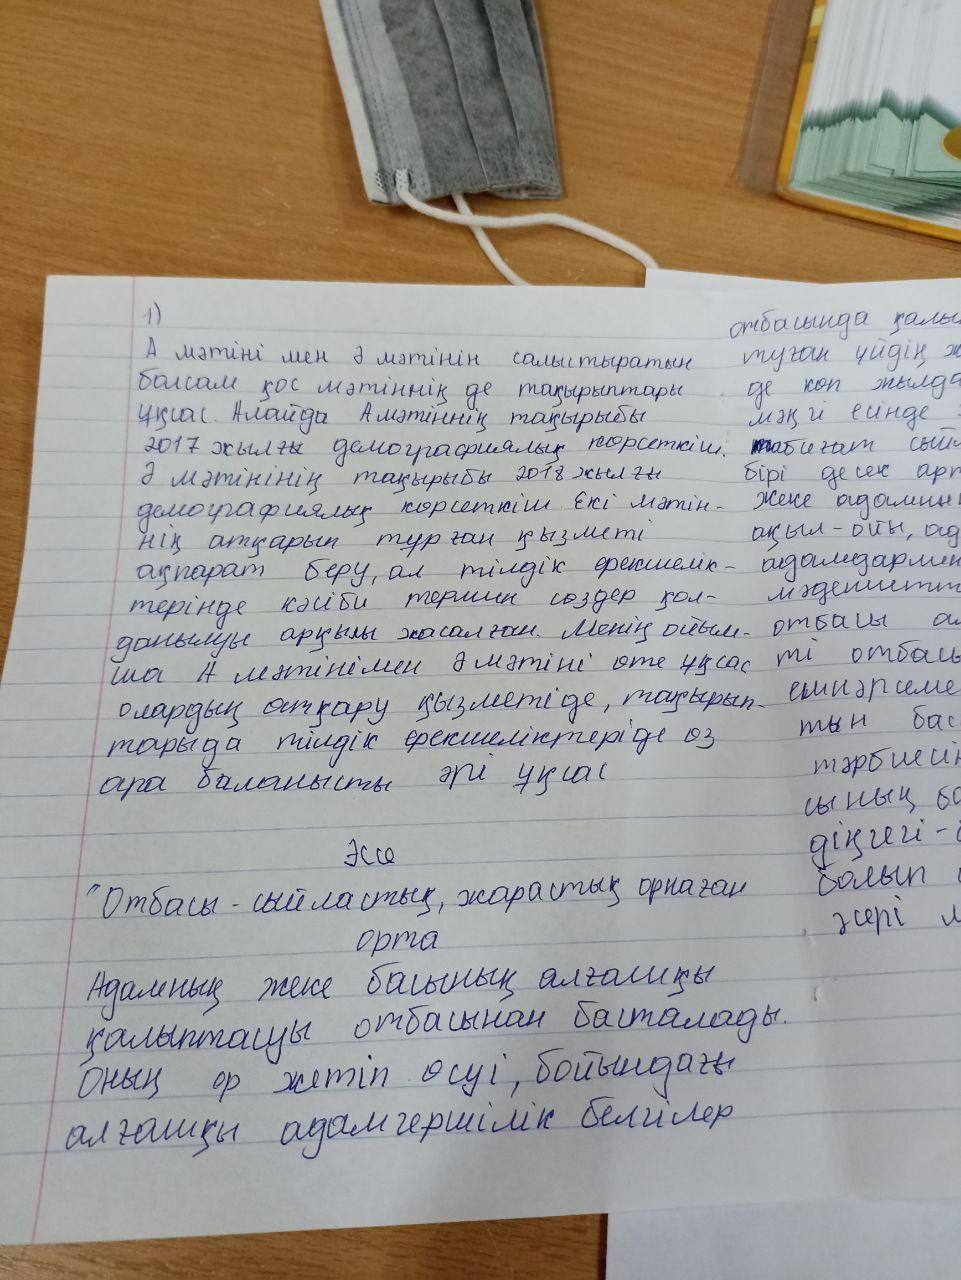 1)
А мәтіні мен Ә мәтінін салыстыратын
болсам қос мәтіннің де тақырыптары
ұқсас. Алайда А мәтіннің тақырыбы
2017 жылғы демографиялық көрсеткіш.
Ә мәтінінің тақырыбы 2018 жылғы
демографиялық көрсеткіш. Екі мәтін-
нің атқарып тұрған қызметі
ақпарат беру, ал тілдік ерекшелік-
терінде кәсіби термин сөздер қол-
данылуы арқылы жасалған. Менің ойым-
ша А мәтінімен Ә мәтіні өте ұқсас
олардың атқару қызметіде, тақырып-
тарыда тілдік ерекшеліктеріде өз
ара баланысты әрі ұқсас
Эссе
"Отбасы - сыйластық, жарастық орнаған
орта
Адамның жеке басының алғашқы
қалыптасуы отбасынан басталады.
Оның ер жетіп өсуі, бойындағы
алғашқы адамгершілік белгілер
отбасында қалы
туған үйдің ж
де көп жылда
мәңгі есінде
табиғат сый
бірі десек арт
жеке адамн
ақыл-ойы, ад
адамдармен
мәдениетт
отбасы ал
ті отбасы
тын бас
тәрбиесін
сының ба
діңгегі -
болып
әсері м